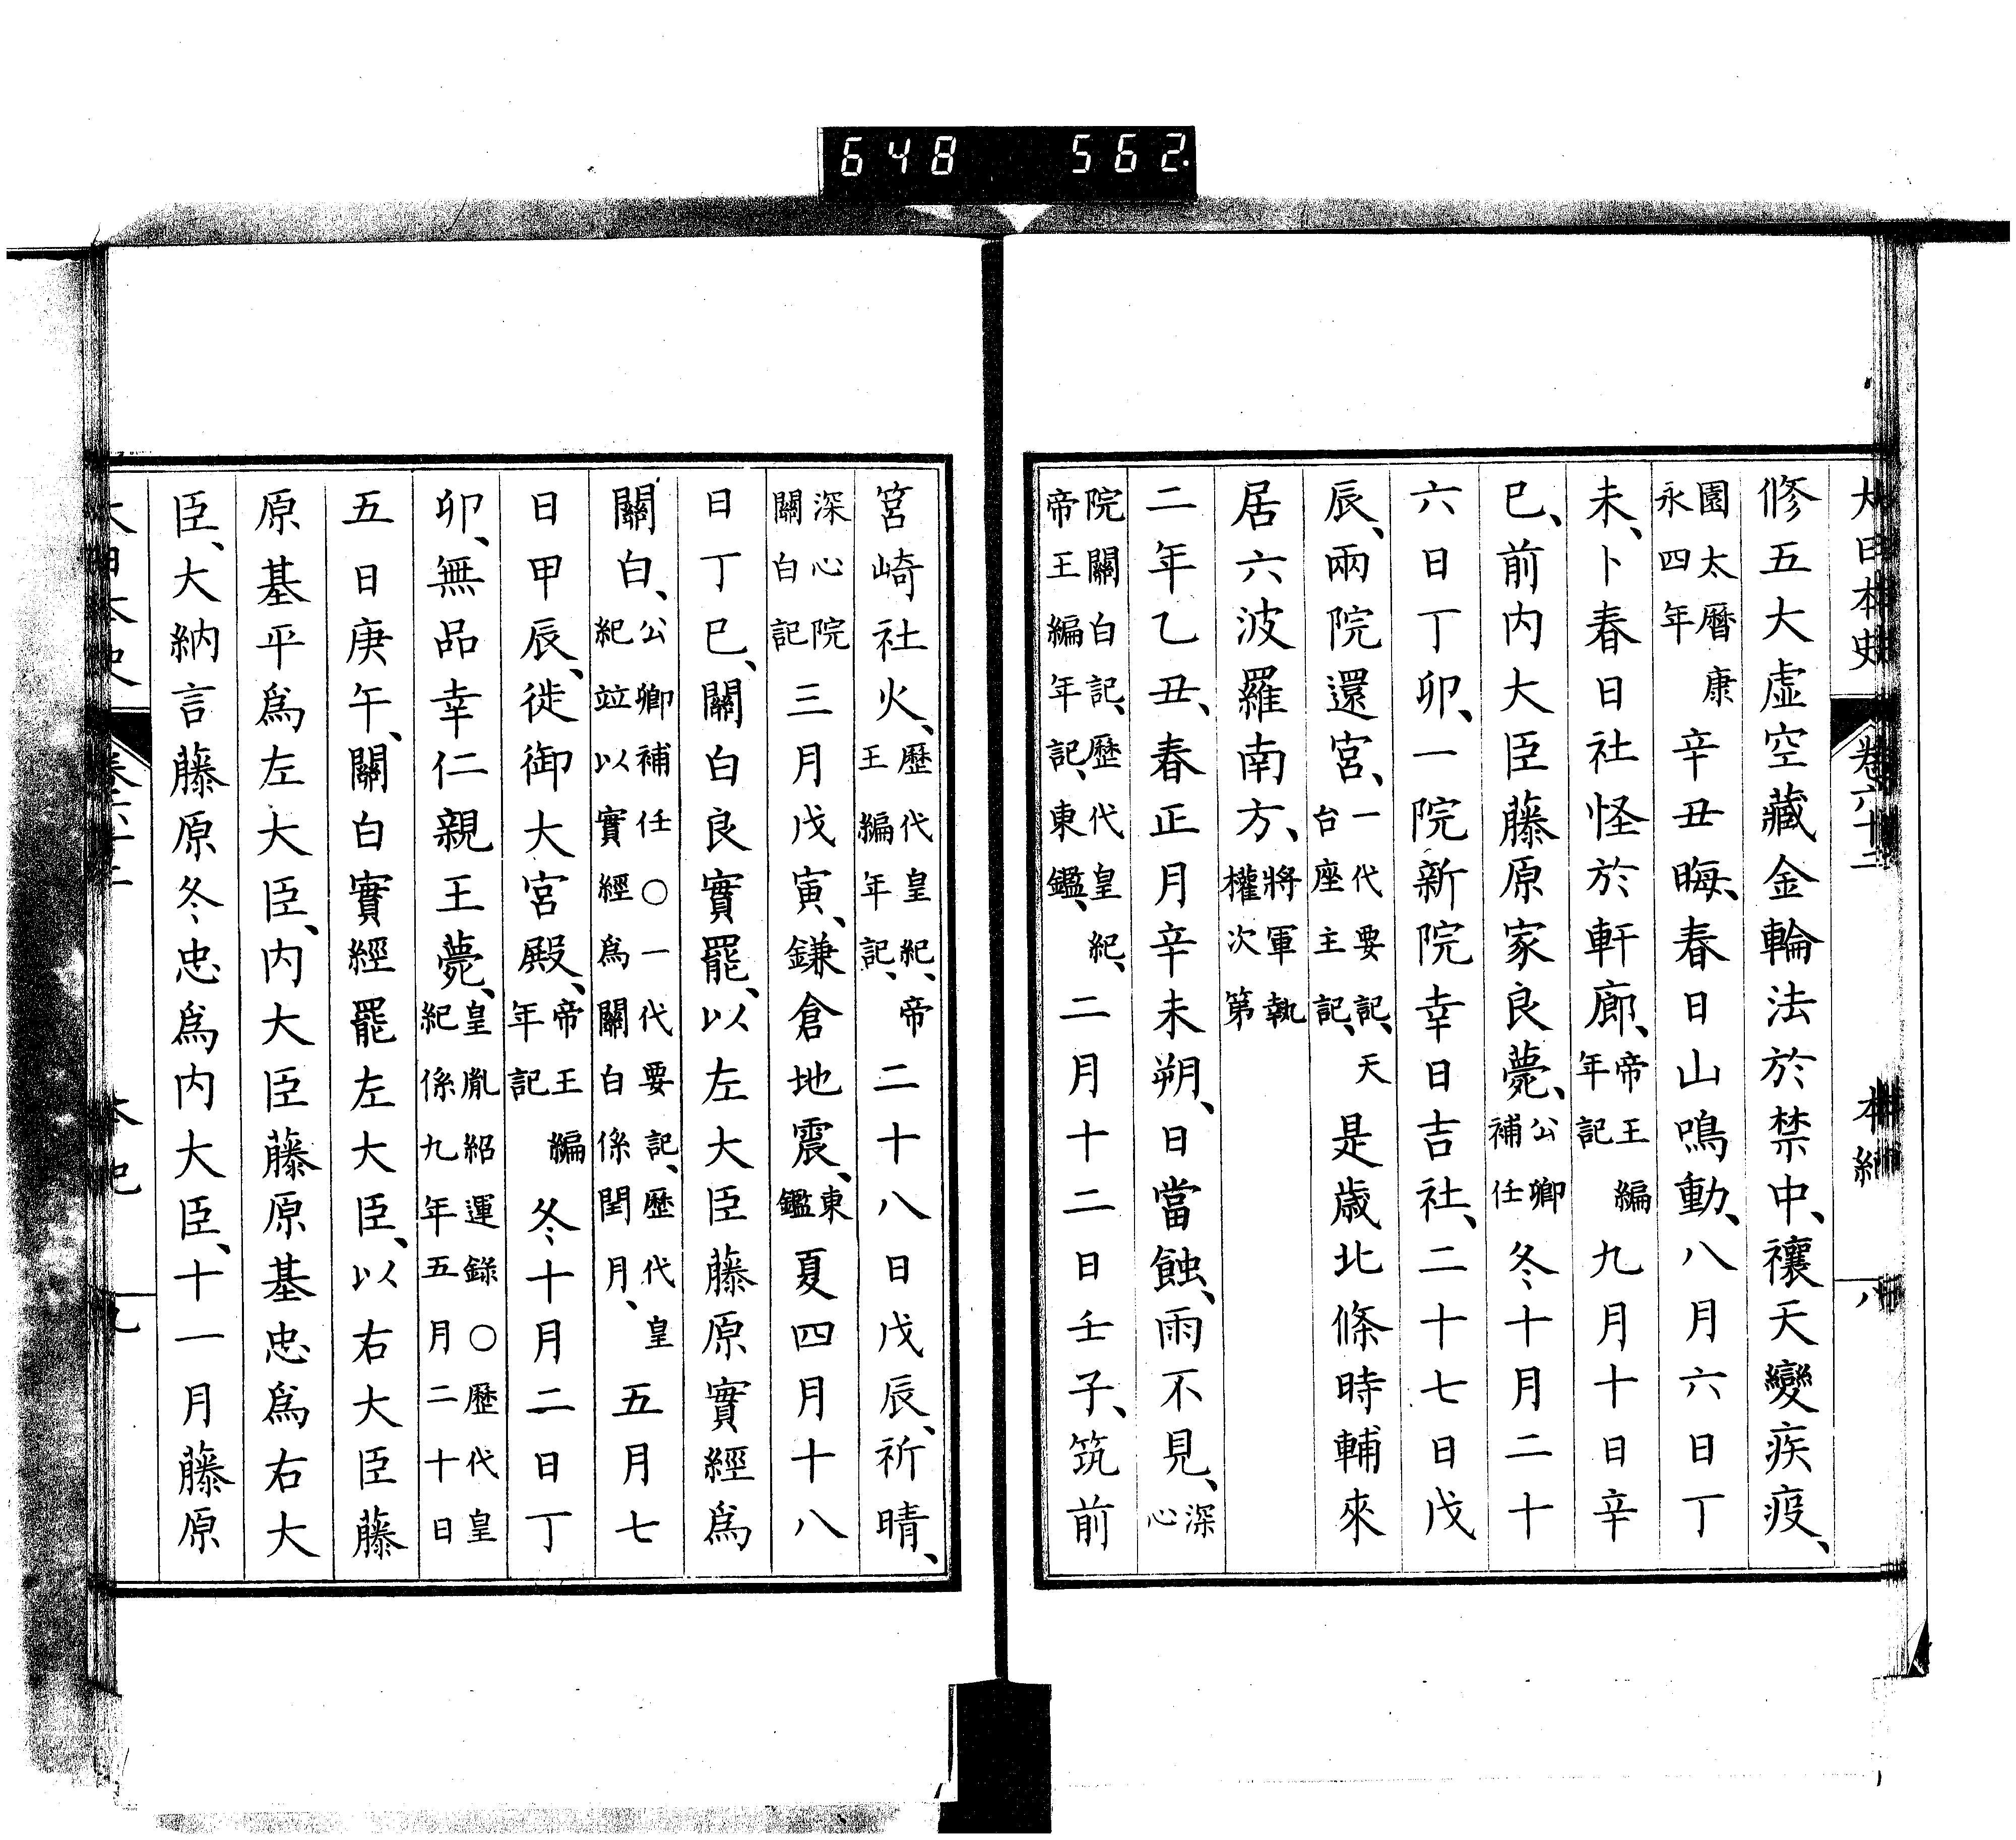 648 562
大日本史 卷六十二 本紀 八
修五大虛空藏金輪法於禁中、禳天變疾疫、
園太曆康永四年辛丑晦、春日山鳴動、八月六日丁
未、卜春日社怪於軒廊、帝王編年記九月十日辛
巳、前内大臣藤原家良薨、公卿補任冬十月二十
六日丁卯、一院新院幸日吉社、二十七日戊
辰、兩院還宮、一代要記、天台座主記、是歲北條時輔來
居六波羅南方、將軍執權次第
二年乙丑、春正月辛未朔、日當蝕、雨不見、深心
院關白記、歷代皇紀、帝王編年記、東鑑、二月十二日壬子、筑前
筥崎社火、歷代皇紀、帝王編年記、二十八日戊辰、祈晴、
深心院關白記三月戊寅、鎌倉地震、東鑑夏四月十八
日丁巳、關白良實罷、以左大臣藤原實經爲
關白、公卿補任○一代要記、歷代皇紀竝以實經爲關白係閏月、五月七
日甲辰、徙御大宮殿、帝王編年記冬十月二日丁
卯、無品幸仁親王薨、皇胤紹運錄○歷代皇紀係九年五月二十日
五日庚午、關白實經罷左大臣、以右大臣藤
原基平爲左大臣、内大臣藤原基忠爲右大
臣、大納言藤原冬忠爲内大臣、十一月藤原
大日本史 本紀 九